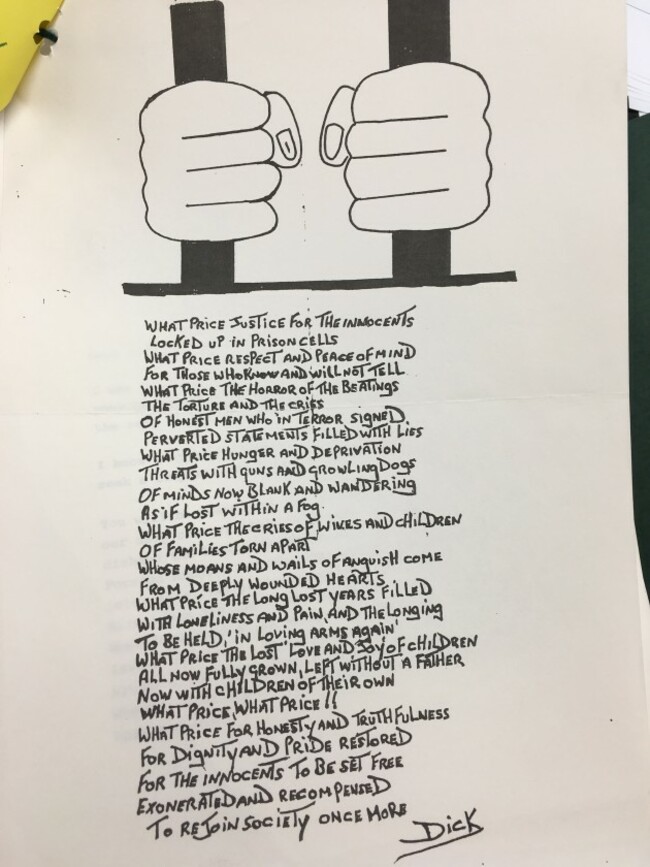 WHAT PRICE JUSTICE FOR THE INNOCENTS
LOCKED UP IN PRISON CELLS
WHAT PRICE RESPECT AND PEACE OF MIND
FOR THOSE WHO KNOW AND WILL NOT TELL
WHAT PRICE THE HORROR OF THE BEATINGS
THE TORTURE AND THE CRIES
OF HONEST MEN WHO IN TERROR SIGNED
PERVERTED STATEMENTS FILLED WITH LIES
WHAT PRICE HUNGER AND DEPRIVATION
THREATS WITH GUNS AND GROWLING DOGS
OF MINDS NOW BLANK AND WANDERING
AS IF LOST WITHIN A FOG.
WHAT PRICE THE CRIES OF WIVES AND CHILDREN
OF FAMILIES TORN APART
WHOSE MOANS AND WAILS OF ANGUISH COME
FROM DEEPLY WOUNDED HEARTS
WHAT PRICE THE LONG LOST YEARS FILLED
WITH LONELINESS AND PAIN, AND THE LONGING
TO BE HELD, 'IN LOVING ARMS AGAIN'
WHAT PRICE THE LOST LOVE AND JOY OF CHILDREN
ALL NOW FULLY GROWN, LEFT WITHOUT A FATHER
NOW WITH CHILDREN OF THEIR OWN
WHAT PRICE, WHAT PRICE!!
WHAT PRICE FOR HONESTY AND TRUTHFULNESS
FOR DIGNITY AND PRIDE RESTORED
FOR THE INNOCENTS TO BE SET FREE
EXONERATED AND RECOMPENSED
TO REJOIN SOCIETY ONCE MORE
DICK